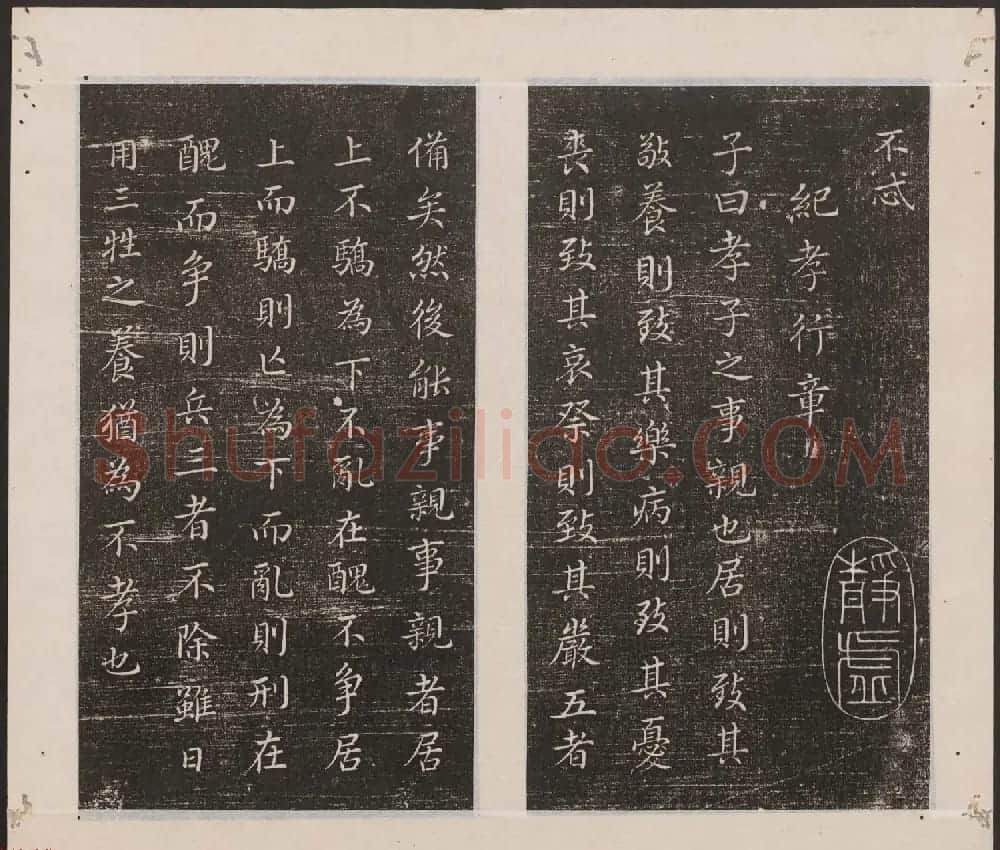 不忒
紀孝行章
子曰孝子之事親也居則致其
敬養則致其樂病則致其憂
喪則致其哀祭則致其嚴五者
備矣然後能事親事親者居
上不驕為下不亂在醜不争居
上而驕則亡為下而亂則刑在
醜而争則兵三者不除雖日
用三牲之養猶為不孝也
靜虛
Shufaziliao.COM